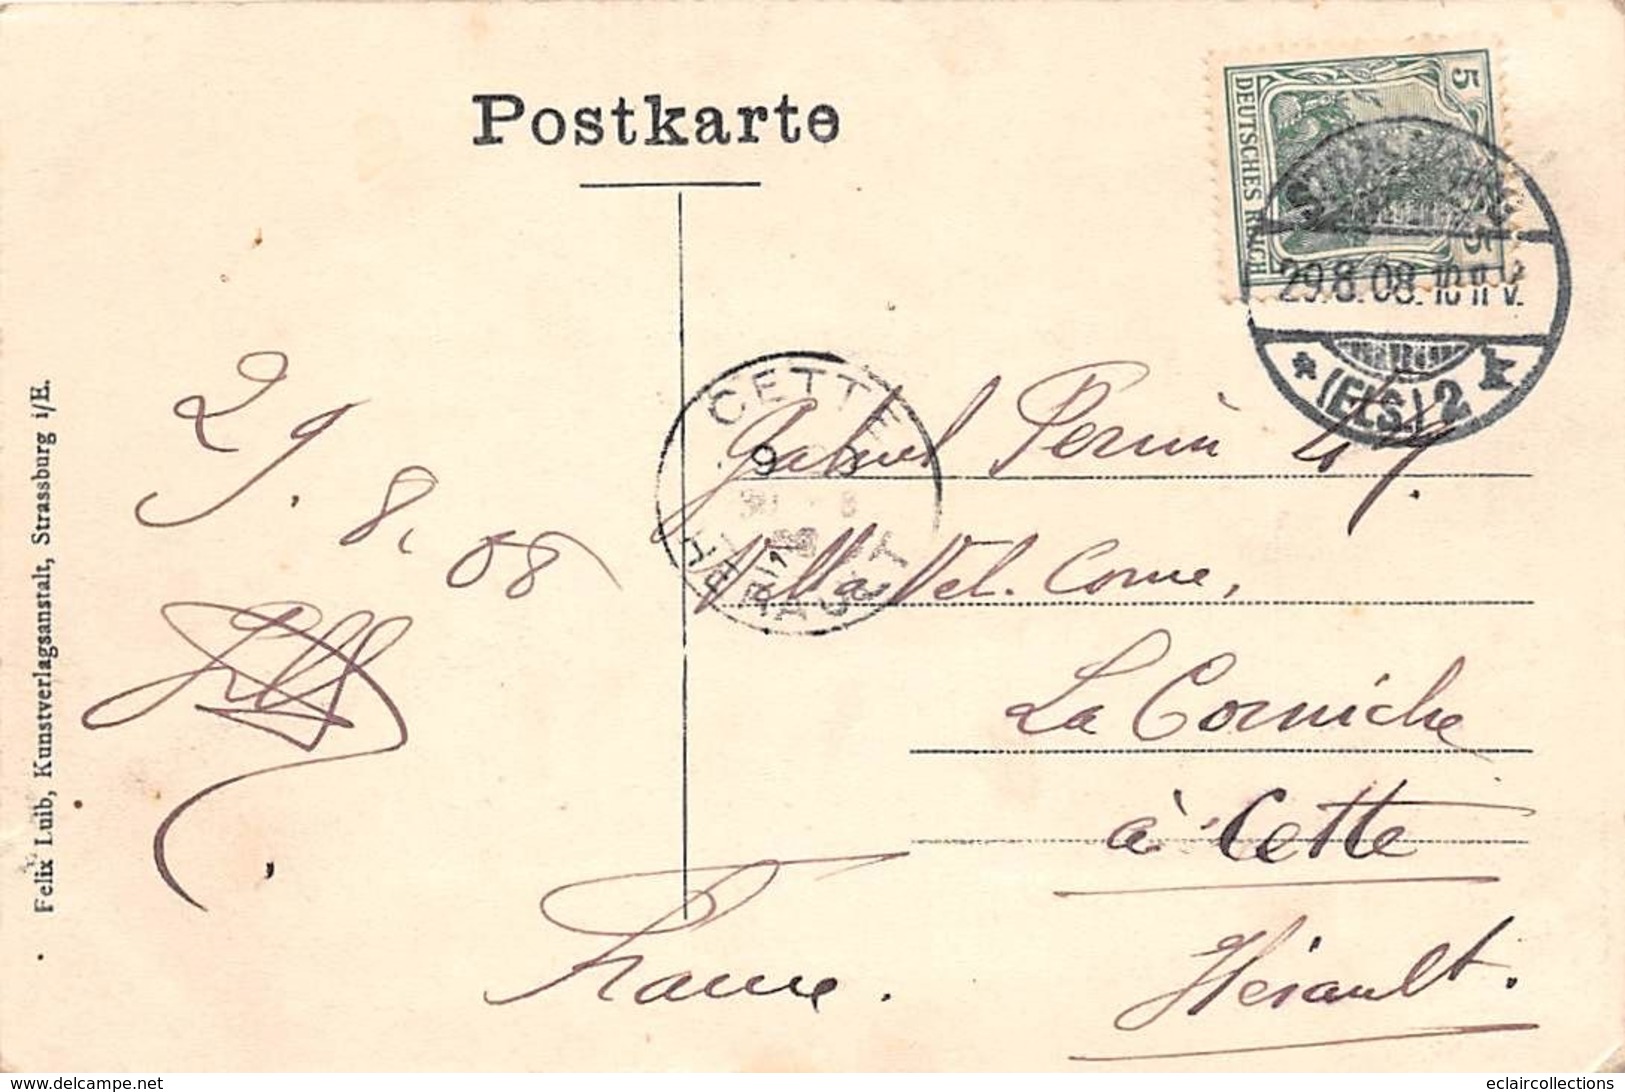 Postkarte
5
DEUTSCHES REICH
5
29.8.08. 10-11 V.
* (ELS.) 2 k
CETTE
HERAULT
29. 8. 08
Gabriel Perrin
Villa Vel. Corne,
La Corniche
à Cette
Hérault.
France.
Felix Luib, Kunstverlagsanstalt, Strassburg i/E.
www.delcampe.net
eclaircollections